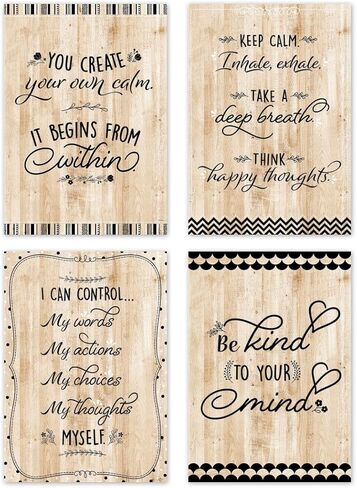 YOU CREATE
your own calm.
IT BEGINS FROM
within.
KEEP CALM.
Inhale, exhale.
TAKE A
deep breath.
THINK
happy thoughts.
I CAN CONTROL...
My words
My actions
My choices
My thoughts
MYSELF.
Be kind
TO YOUR
mind.